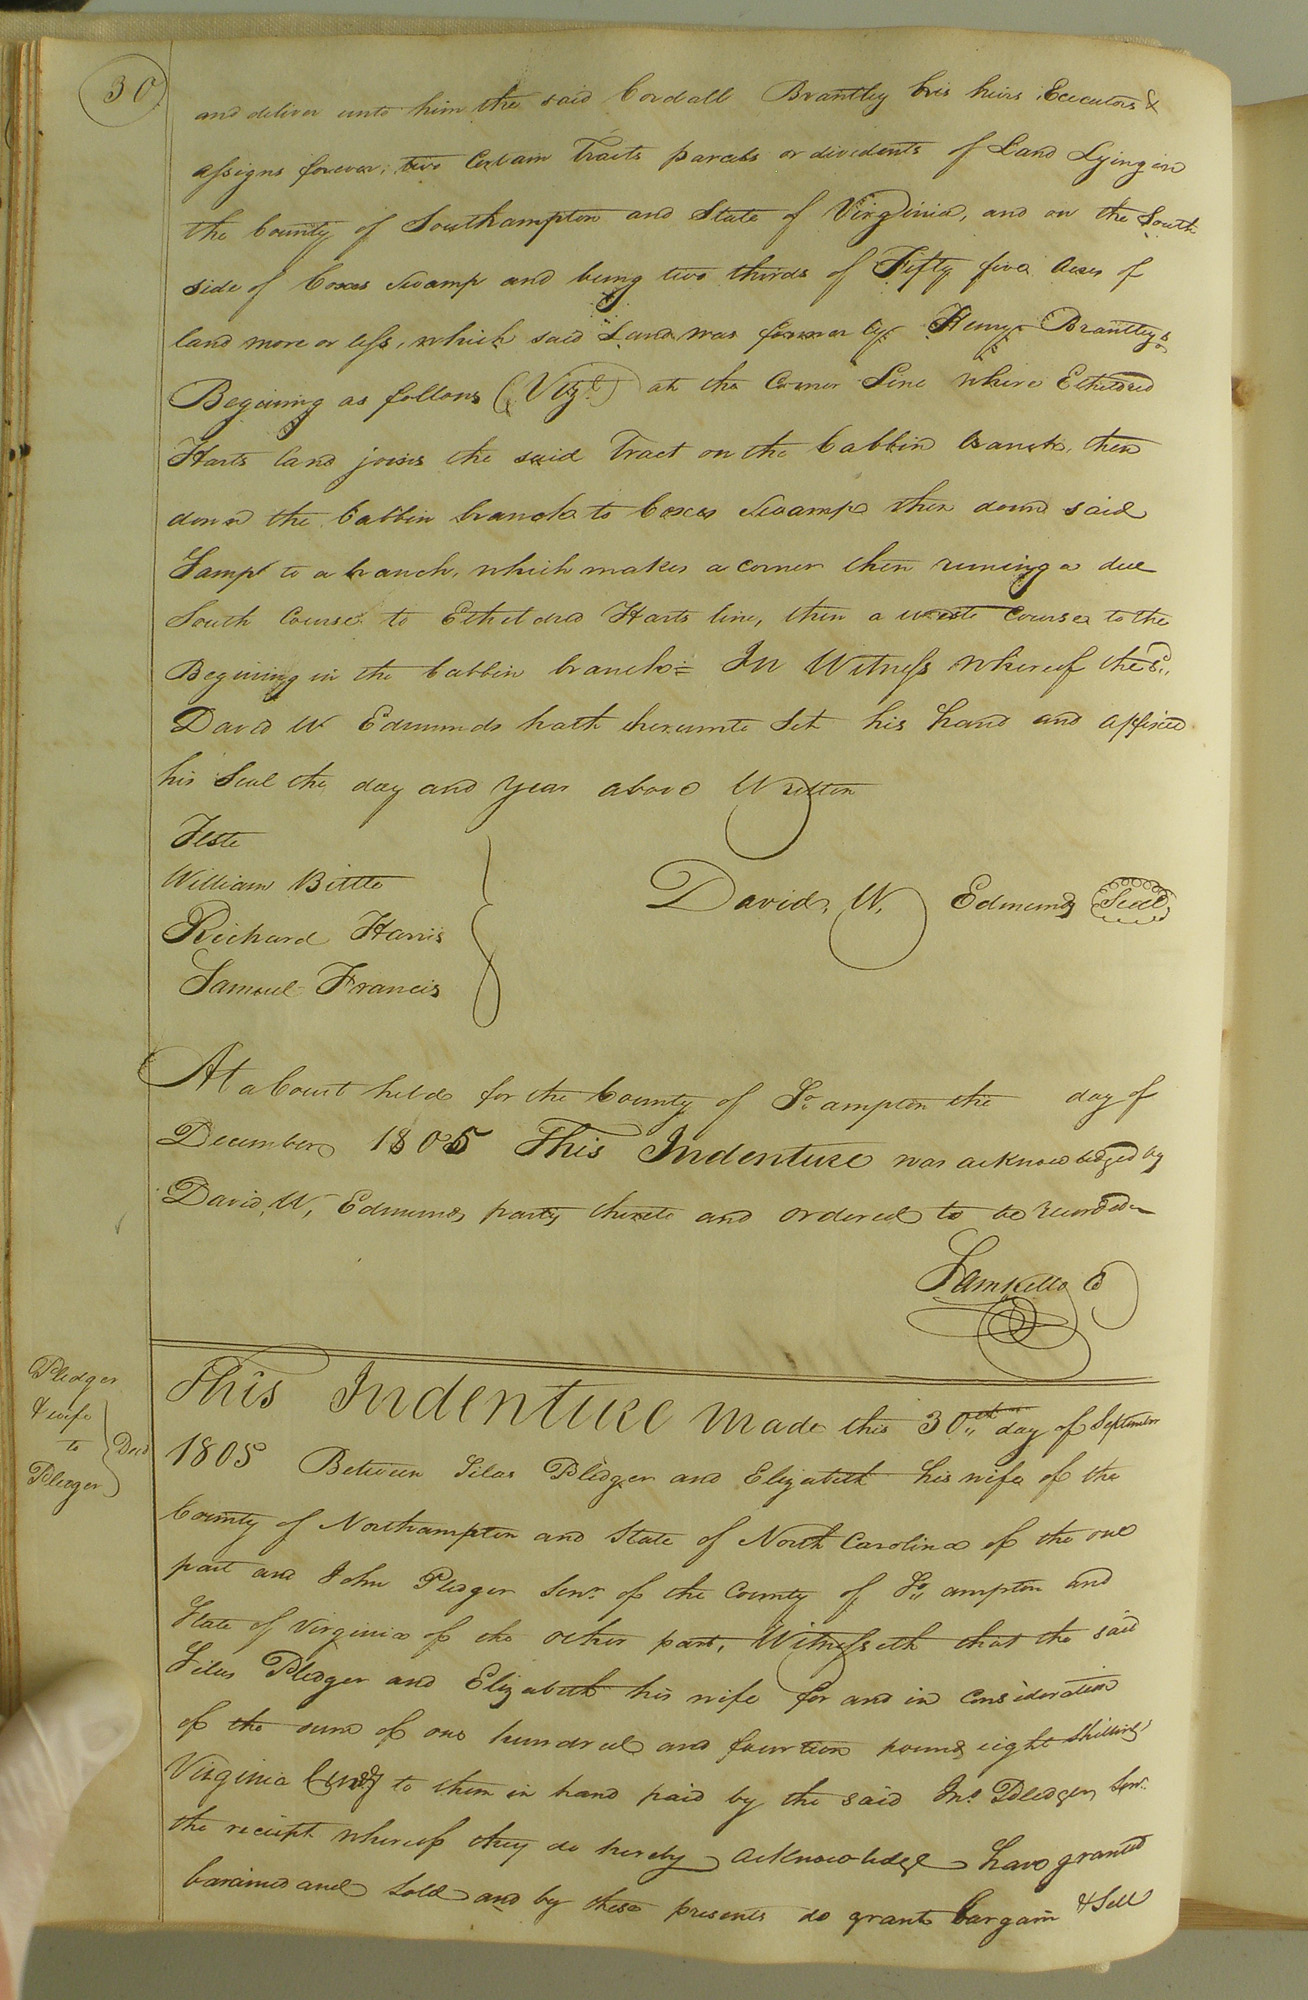 30
and deliver unto him the said Cordall Brantley his heirs Executors &
assigns forever, two Certain Tracts parcels or dividents of Land Lying in
the County of Southampton and State of Virginia, and on the South
side of Coxes Swamp and being two thirds of Fifty five Acres of
land more or less, which said Land was former ly Henry Brantleys
Begining as follows (Vizt.) at the Corner Line where Etheldred
Harts land joins the said Tract on the Cabbin branch, then
down the Cabbin branch to Coxes Swamp then down said
Samp to a branch, which makes a corner then runing a due
South Course to Etheldred Harts line, then a weste Course to the
Begining in the Cabbin branch= In Witness whereof the sd.
David W Edmunds hath hereunto Set his hand and affixed
his Seal the day and Year above Written
Teste
William Bittle
Richard Harris
Samuel Francis
David, W, Edmunds Seal
At a Court held for the County of So. ampton the day of
December 1805 This Indenture was acknowledged by
David, W, Edmunds party thereto and ordered to be recorded
Sam Kello C
Pledger
& wife
to
Pledger
Deed
This Indenture Made this 30th day of September
1805 Between Silas Pledger and Elizabeth his wife of the
County of Northampton and State of North Carolina of the one
part and John Pledger Senr. of the County of So. ampton and
State of Virginia of the other part, Witnesseth that the said
Silas Pledger and Elizabeth his wife for and in Consideration
of the sum of one hundred and fourteen pounds eight shillings
Virginia Curry to them in hand paid by the said Jno. Pledger Senr.
the receipt whereof they do hereby acknowledge have granted
barained and Sold and by these presents do grant bargain & Sell